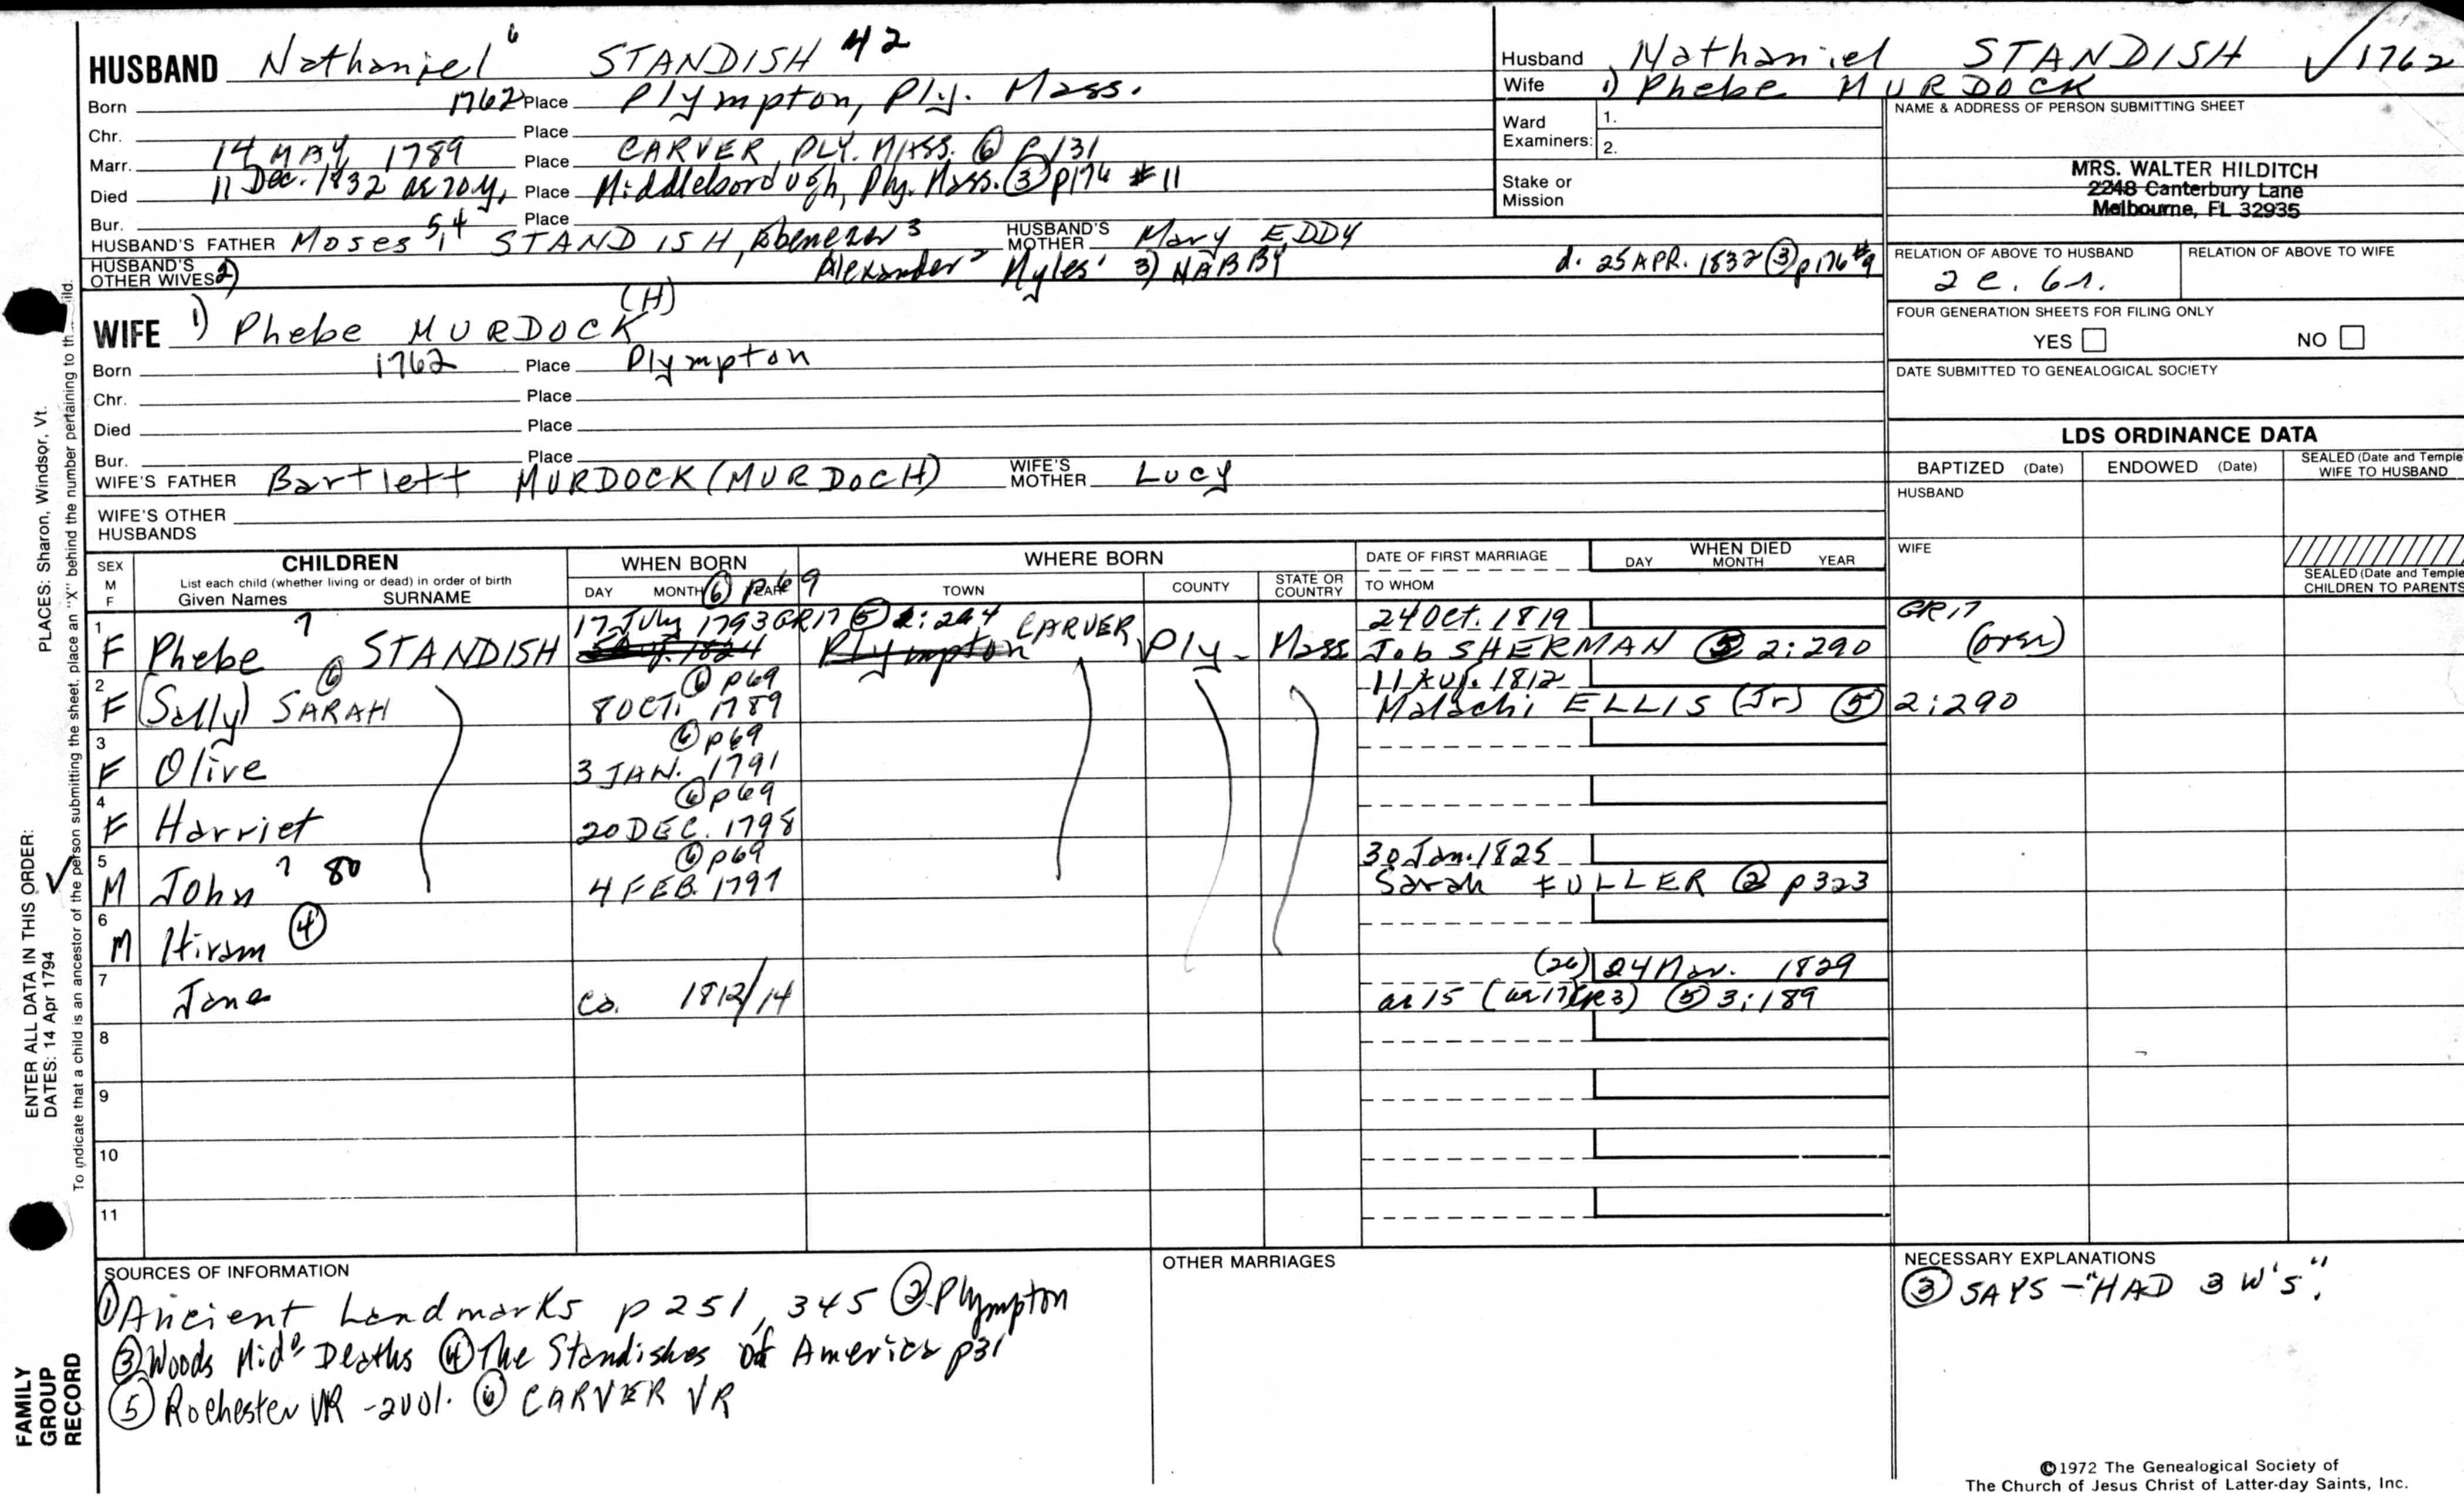 HUSBAND Nathaniel 6 STANDISH 42
Born 1762 Place Plympton, Ply. Mass.
Chr. Place
Marr. 14 MAY 1789 Place CARVER, PLY. MASS. ⑥ p131
Died 11 Dec. 1832 ae 70y, Place Middleborough, Ply. Mass. ③ p176 #11
Bur. Place
HUSBAND'S FATHER Moses 5,4 STANDISH, Ebenezer 3 HUSBAND'S MOTHER Mary EDDY
HUSBAND'S OTHER WIVES 2) Alexander 2 Myles 1 3) NABBY d. 25 APR. 1832 ③ p176 #9
Husband Nathaniel STANDISH √1762
Wife 1) Phebe MURDOCK
Ward Examiners: 1.
2.
Stake or Mission
NAME & ADDRESS OF PERSON SUBMITTING SHEET
MRS. WALTER HILDITCH
2248 Canterbury Lane
Melbourne, FL 32935
RELATION OF ABOVE TO HUSBAND RELATION OF ABOVE TO WIFE
2 c. 6r.
FOUR GENERATION SHEETS FOR FILING ONLY
YES NO
DATE SUBMITTED TO GENEALOGICAL SOCIETY
WIFE 1) Phebe MURDOCK (H)
Born 1762 Place Plympton
Chr. Place
Died Place
Bur. Place
WIFE'S FATHER Bartlett MURDOCK (MURDOCH) WIFE'S MOTHER Lucy
WIFE'S OTHER HUSBANDS
LDS ORDINANCE DATA
BAPTIZED (Date) ENDOWED (Date) SEALED (Date and Temple) WIFE TO HUSBAND
HUSBAND
WIFE
SEALED (Date and Temple) CHILDREN TO PARENTS
SEX M F CHILDREN WHEN BORN WHERE BORN DATE OF FIRST MARRIAGE WHEN DIED
List each child (whether living or dead) in order of birth
Given Names SURNAME DAY MONTH YEAR TOWN COUNTY STATE OR COUNTRY TO WHOM DAY MONTH YEAR
⑥ p69
1 17 July 1793 GR17 ⑤ 2:294 CARVER 24 Oct. 1819 GR17
F Phebe 7 STANDISH Plympton Ply. Mass Job SHERMAN ⑤ 2:290
2 ⑥ p69 11 Aug. 1812
F (Sally) SARAH ⑥ 8 OCT. 1789 Malachi ELLIS (Jr) ⑤ 2:290
3 ⑥ p69
F Olive 3 JAN. 1791
4 ⑥ p69
F Harriet 20 DEC. 1798
5 ⑥ p69 30 Jan. 1825
M John 7 80 4 FEB. 1797 Sarah FULLER ② p323
6
M Hiram ④
7 (26) 24 Nov. 1829
Jane Ca. 1812/14 ae 15 (ae 17 GR3) ⑤ 3:189
8
9
10
11
SOURCES OF INFORMATION
① Ancient Landmarks p 251, 345 ② Plympton
③ Woods Mid° Deaths ④ The Standishes of America p31
⑤ Rochester VR - 2 vol. ⑥ CARVER VR
OTHER MARRIAGES
NECESSARY EXPLANATIONS
③ SAYS - "HAD 3 W'S".
©1972 The Genealogical Society of
The Church of Jesus Christ of Latter-day Saints, Inc.
PLACES: Sharon, Windsor, Vt.
ENTER ALL DATA IN THIS ORDER:
DATES: 14 Apr 1794
To indicate that a child is an ancestor of the person submitting the sheet, place an "X" behind the number pertaining to that child.
FAMILY GROUP RECORD